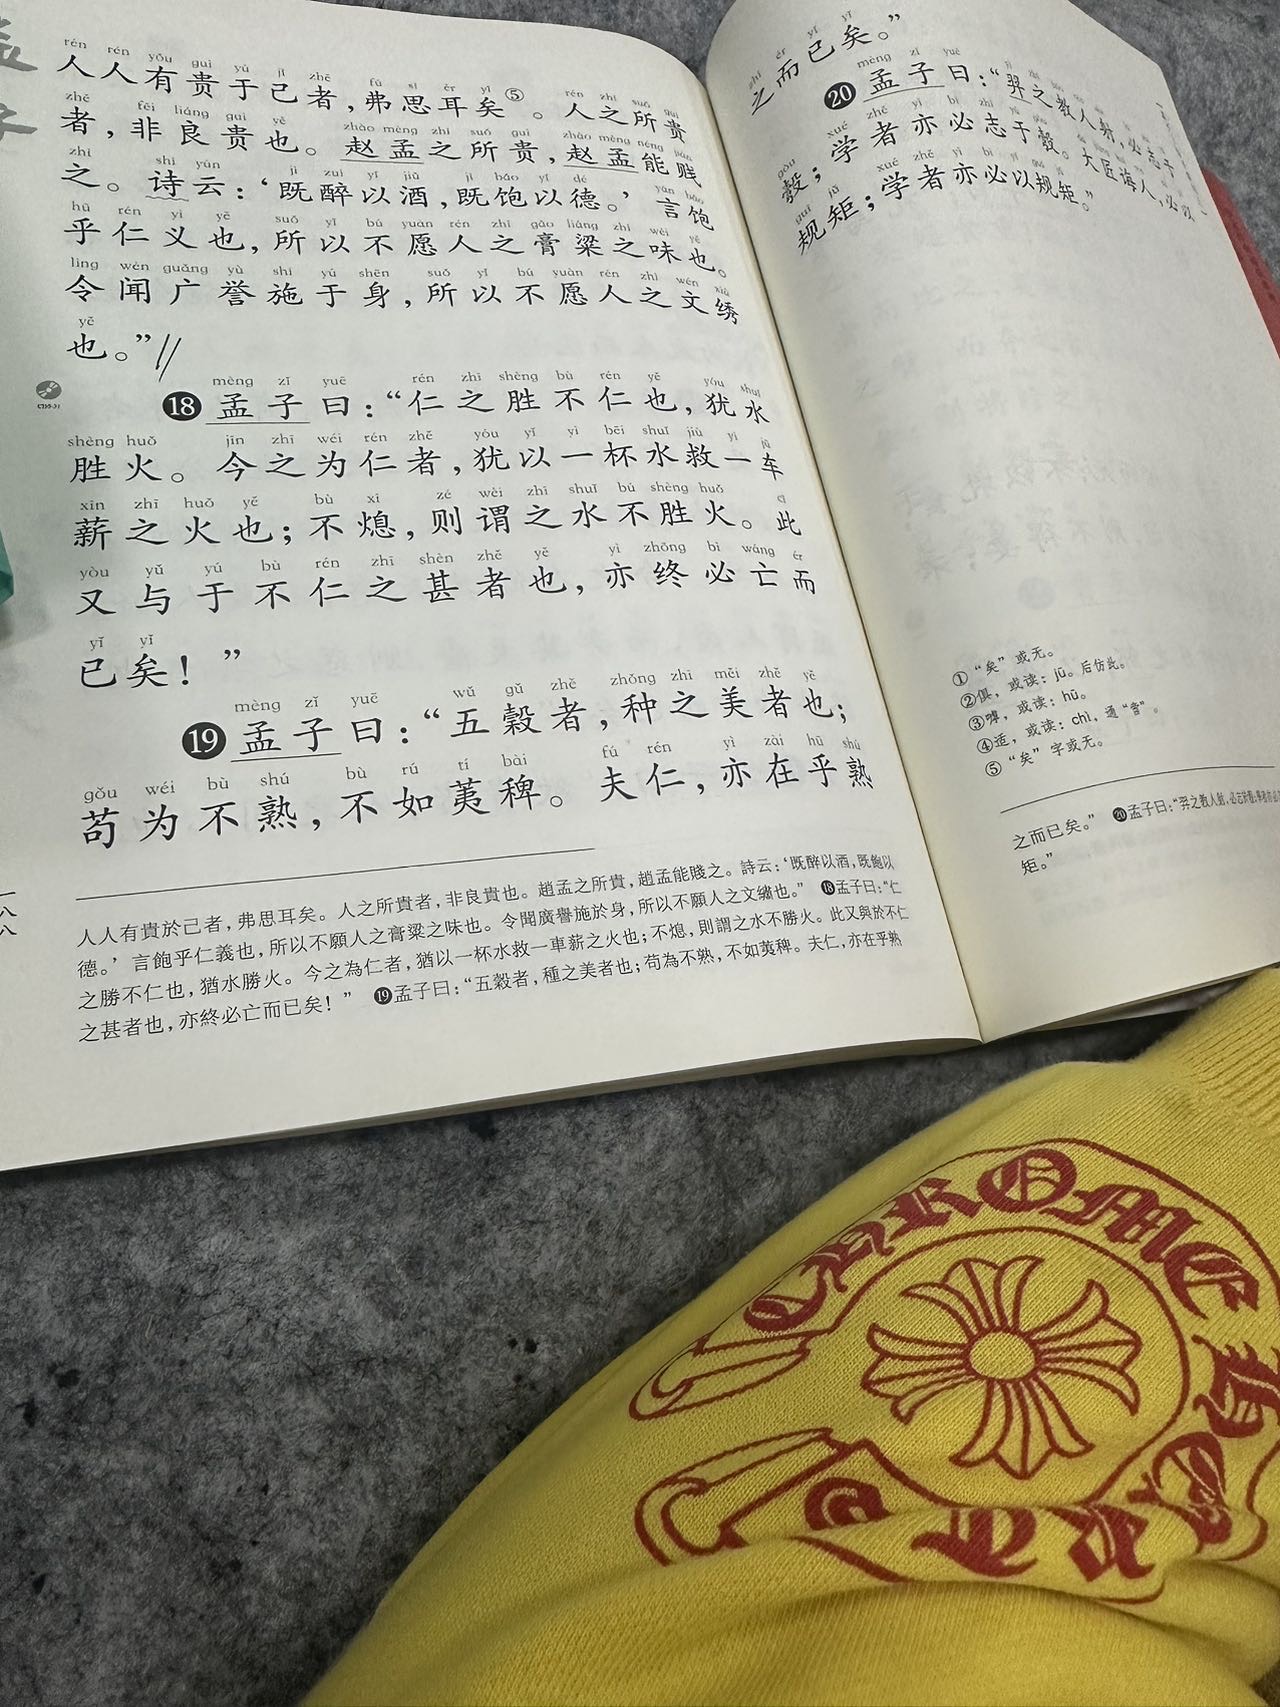 孟子
rén rén yǒu guì yú jǐ zhě fú sī ěr yǐ rén zhī suǒ guì
人人有贵于己者，弗思耳矣⑤。人之所贵
zhě fēi liáng guì yě zhào mèng zhī suǒ guì zhào mèng néng jiàn
者，非良贵也。赵孟之所贵，赵孟能贱
zhī shī yún jì zuì yǐ jiǔ jì bǎo yǐ dé yán bǎo
之。诗云：‘既醉以酒，既饱以德。’言饱
hū rén yì yě suǒ yǐ bú yuàn rén zhī gāo liáng zhī wèi yě
乎仁义也，所以不愿人之膏粱之味也。
lìng wén guǎng yù shī yú shēn suǒ yǐ bú yuàn rén zhī wén xiù
令闻广誉施于身，所以不愿人之文绣
yě
也。”//
mèng zǐ yuē rén zhī shèng bù rén yě yóu shuǐ
18 孟子曰：“仁之胜不仁也，犹水
shèng huǒ jīn zhī wéi rén zhě yóu yǐ yì bēi shuǐ jiù yì jū
胜火。今之为仁者，犹以一杯水救一车
xīn zhī huǒ yě bù xī zé wèi zhī shuǐ bú shèng huǒ cǐ
薪之火也；不熄，则谓之水不胜火。此
yòu yǔ yú bù rén zhī shèn zhě yě yì zhōng bì wáng ér
又与于不仁之甚者也，亦终必亡而
yǐ yǐ
已矣！”
mèng zǐ yuē wǔ gǔ zhě zhǒng zhī měi zhě yě
19 孟子曰：“五穀者，种之美者也；
gǒu wéi bù shú bù rú tí bài fú rén yì zài hū shú
苟为不熟，不如荑稗。夫仁，亦在乎熟
人人有貴於己者，弗思耳矣。人之所貴者，非良貴也。趙孟之所貴，趙孟能賤之。詩云：‘既醉以酒，既飽以
德。’言飽乎仁義也，所以不願人之膏粱之味也。令聞廣譽施於身，所以不願人之文繡也。” 18孟子曰：“仁
之勝不仁也，猶水勝火。今之為仁者，猶以一杯水救一車薪之火也；不熄，則謂之水不勝火。此又與於不仁
之甚者也，亦終必亡而已矣！” 19孟子曰：“五穀者，種之美者也；苟為不熟，不如荑稗。夫仁，亦在乎熟
一八八
zhī ér yǐ yǐ
之而已矣。”
mèng zǐ yuē
20 孟子曰：“羿之教人射，必志于
gòu xué zhě yì bì zhì yú gòu
彀；学者亦必志于彀。大匠诲人，必以
guī jǔ xué zhě yì bì yǐ guī jǔ
规矩；学者亦必以规矩。”
①“矣”或无。
②俱，或读：jū。后仿此。
③嘑，或读：hū。
④适，或读：chì，通“啻”。
⑤“矣”字或无。
之而已矣。” 20孟子曰：“羿之教人射，必志於彀；學者亦必
矩。”
CHROME HEARTS